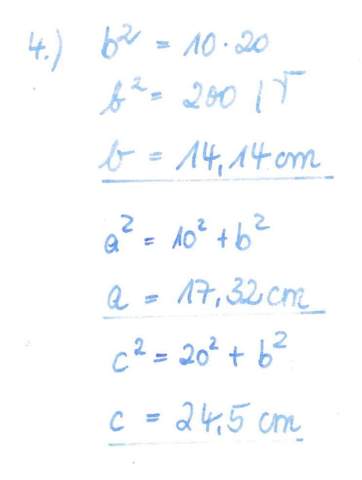 4.) b² = 10·20
b² = 200 | √
b = 14,14 cm
a² = 10² + b²
a = 17,32 cm
c² = 20² + b²
c = 24,5 cm